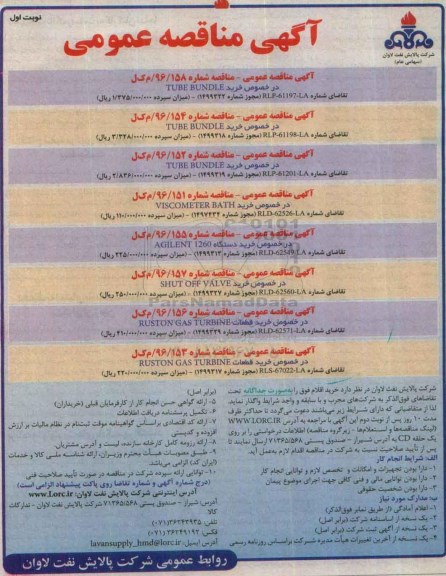 نوبت اول
آگهی مناقصه عمومی
شرکت پالایش نفت لاوان
(سهامی عام)
آگهی مناقصه عمومی - مناقصه شماره ۹۶/۱۵۸/م ک ل
در خصوص خرید TUBE BUNDLE
تقاضای شماره RLP-61197-LA (مجوز شماره ۱۴۹۹۳۲۲) - (میزان سپرده ۱/۳۷۵/۰۰۰/۰۰۰ ریال)
آگهی مناقصه عمومی - مناقصه شماره ۹۶/۱۵۴/م ک ل
در خصوص خرید TUBE BUNDLE
تقاضای شماره RLP-61198-LA (مجوز شماره ۱۴۹۹۳۱۸) - (میزان سپرده ۳/۳۳۸/۰۰۰/۰۰۰ ریال)
آگهی مناقصه عمومی - مناقصه شماره ۹۶/۱۵۲/م ک ل
در خصوص خرید TUBE BUNDLE
تقاضای شماره RLP-61201-LA (مجوز شماره ۱۴۹۹۳۱۹) - (میزان سپرده ۲/۸۳۶/۰۰۰/۰۰۰ ریال)
آگهی مناقصه عمومی - مناقصه شماره ۹۶/۱۵۱/م ک ل
در خصوص خرید VISCOMETER BATH
تقاضای شماره RLD-62526-LA (مجوز شماره ۱۴۹۷۲۳۴) - (میزان سپرده ۱۱۰/۰۰۰/۰۰۰ ریال)
آگهی مناقصه عمومی - مناقصه شماره ۹۶/۱۵۵/م ک ل
در خصوص خرید دستگاه AGILENT 1260
تقاضای شماره RLD-62549-LA (مجوز شماره ۱۴۹۹۳۱۳) - (میزان سپرده ۲۲۵/۰۰۰/۰۰۰ ریال)
آگهی مناقصه عمومی - مناقصه شماره ۹۶/۱۵۷/م ک ل
در خصوص خرید SHUT OFF VALVE
تقاضای شماره RLD-62560-LA (مجوز شماره ۱۴۹۹۳۲۷) - (میزان سپرده ۲۵۰/۰۰۰/۰۰۰ ریال)
ParsNamadData
آگهی مناقصه عمومی - مناقصه شماره ۹۶/۱۵۶/م ک ل
در خصوص خرید قطعات RUSTON GAS TURBINE
تقاضای شماره RLD-82571-LA (مجوز شماره ۱۴۹۹۳۲۹) - (میزان سپرده ۴۱۰/۰۰۰/۰۰۰ ریال)
آگهی مناقصه عمومی - مناقصه شماره ۹۶/۱۵۳/م ک ل
در خصوص خرید قطعات RUSTON GAS TURBINE
تقاضای شماره RLS-67022-LA (مجوز شماره ۱۴۹۹۳۱۷) - (میزان سپرده ۲۲۰/۰۰۰/۰۰۰ ریال)
شرکت پالایش نفت لاوان در نظر دارد خرید اقلام فوق را به صورت جداگانه تحت
تقاضاهای فوق الذکر به شرکت های مجرب و با سابقه و واجد شرایط واگذار نماید.
لذا از متقاضیانی که دارای شرایط زیر می باشند دعوت می گردد تا حداکثر ظرف
مدت ۱۰ روز پس از نوبت دوم این آگهی با مراجعه به آدرس WWW.LORC.IR
(لینک مناقصه ها و مستعلام ها - زیرگروه مناقصه) اطلاعات درخواستی را بر روی
یک حلقه CD به آدرس شیراز - صندوق پستی ۷۱۳۶۵/۵۶۸ ارسال نمایند تا
پس از تأیید صلاحیت نسبت به شرکت در مناقصه اقدام لازم به عمل آید.
الف: شرایط انجام کار
۱ - دارا بودن تجهیزات و امکانات و تخصص لازم و توانایی انجام کار
۲ - دارا بودن توانایی مالی و فنی کافی جهت اجرای موضوع پیمان
۳ - دارا بودن شخصیت حقوقی
ب: مدارک مورد نیاز
۱ - اعلام آمادگی (از طریق نمابر فوق الذکر)
۲ - یک نسخه از اساسنامه شرکت (برابر اصل)
۳ - یک نسخه از آگهی ثبت شرکت (برابر اصل)
۴ - یک نسخه از آخرین تغییرات هیأت مدیره شرکت براساس روزنامه رسمی
(برابر اصل)
۵ - ارائه گواهی حسن انجام کار از کارفرمایان قبلی (خریداران)
۶ - تکمیل پرسشنامه دریافت اطلاعات
۷ - ارائه کد اقتصادی براساس گواهینامه موقت ثبت نام در نظام مالیات بر ارزش
افزوده و کد پستی
۸ - ارائه رزومه کامل کارخانه سازنده، لیست و آدرس مشتریان
(ایران کد) الزامی می باشد.
۱۰ - توانایی ارائه سپرده شرکت در مناقصه در صورت تأیید صلاحیت فنی
(درج شماره آگهی و شماره تقاضا روی پاکت پیشنهاد الزامی است)
آدرس اینترنتی شرکت پالایش نفت لاوان: www.Lorc.ir
آدرس: شیراز - صندوق پستی ۷۱۳۶۵/۵۶۸ شرکت پالایش نفت لاوان - تدارکات
کالا
فکس: (۰۷۱)
آدرس ایمیل: lavansupply_hmd@lorc.ir
روابط عمومی شرکت پالایش نفت لاوان